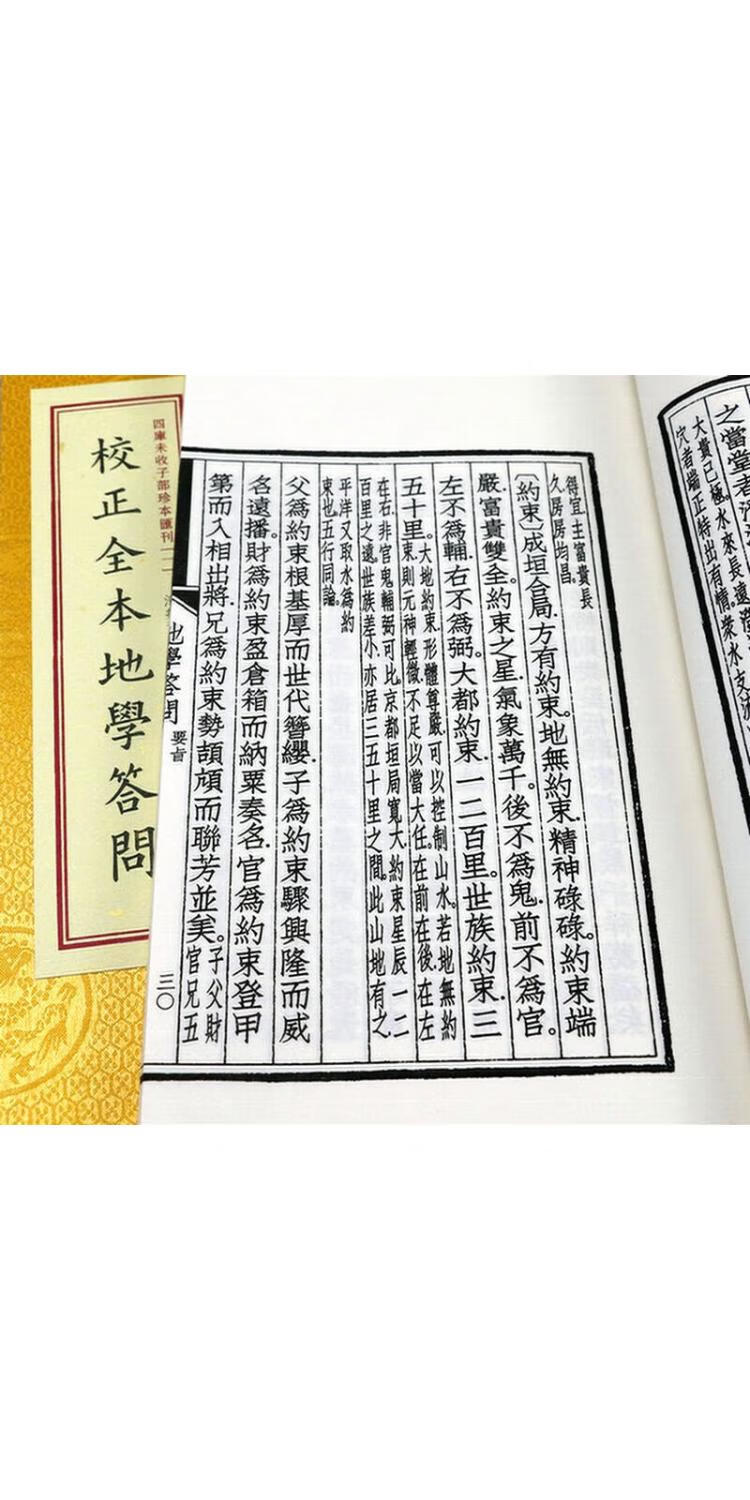 四庫未收子部珍本匯刊
校正全本地學答問
之當堂者
大貴已極。水來長遠
穴者端正特出有情。衆水支
得宜主富貴長
久房房均昌。
〔約束〕成垣合局.方有約束。地無約束.精神碌碌。約束端
嚴.富貴雙全。約束之星.氣象萬千。後不爲鬼.前不爲官。
左不爲輔.右不爲弼。大都約束.一二百里。世族約束.三
五十里。
大地約束.形體尊嚴.可以控制山水。若地無約
束.則元神輕微.不足以當大任。在前在後.在左
在右.非官鬼輔弼可比。京都垣局寬大.約束星辰.一二
百里之遠。世族差小.亦居三五十里之間。此山地有之.
平洋又取水爲約
束也。五行同論。
父爲約束根基厚而世代簪纓.子爲約束驟興隆而威
名遠播。財爲約束盈倉箱而納粟奏名.官爲約束登甲
第而入相出將.兄爲約束勢頡頏而聯芳並美。
子父財
官兄五
地學答問
要旨
三〇